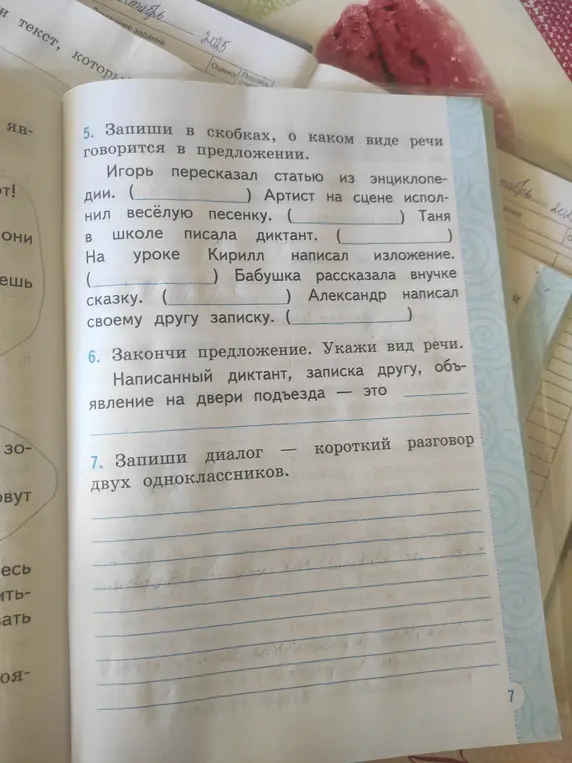 2025
и текст, который
Оценка
2025
яв-
от!
они
ешь
зо-
овут
есь
ить-
вать
оя-
5. Запиши в скобках, о каком виде речи
говорится в предложении.
Игорь пересказал статью из энциклопе-
дии. (____________) Артист на сцене испол-
нил весёлую песенку. (____________) Таня
в школе писала диктант. (____________)
На уроке Кирилл написал изложение.
(____________) Бабушка рассказала внучке
сказку. (____________) Александр написал
своему другу записку. (____________)
6. Закончи предложение. Укажи вид речи.
Написанный диктант, записка другу, объ-
явление на двери подъезда — это ______
7. Запиши диалог — короткий разговор
двух одноклассников.
7